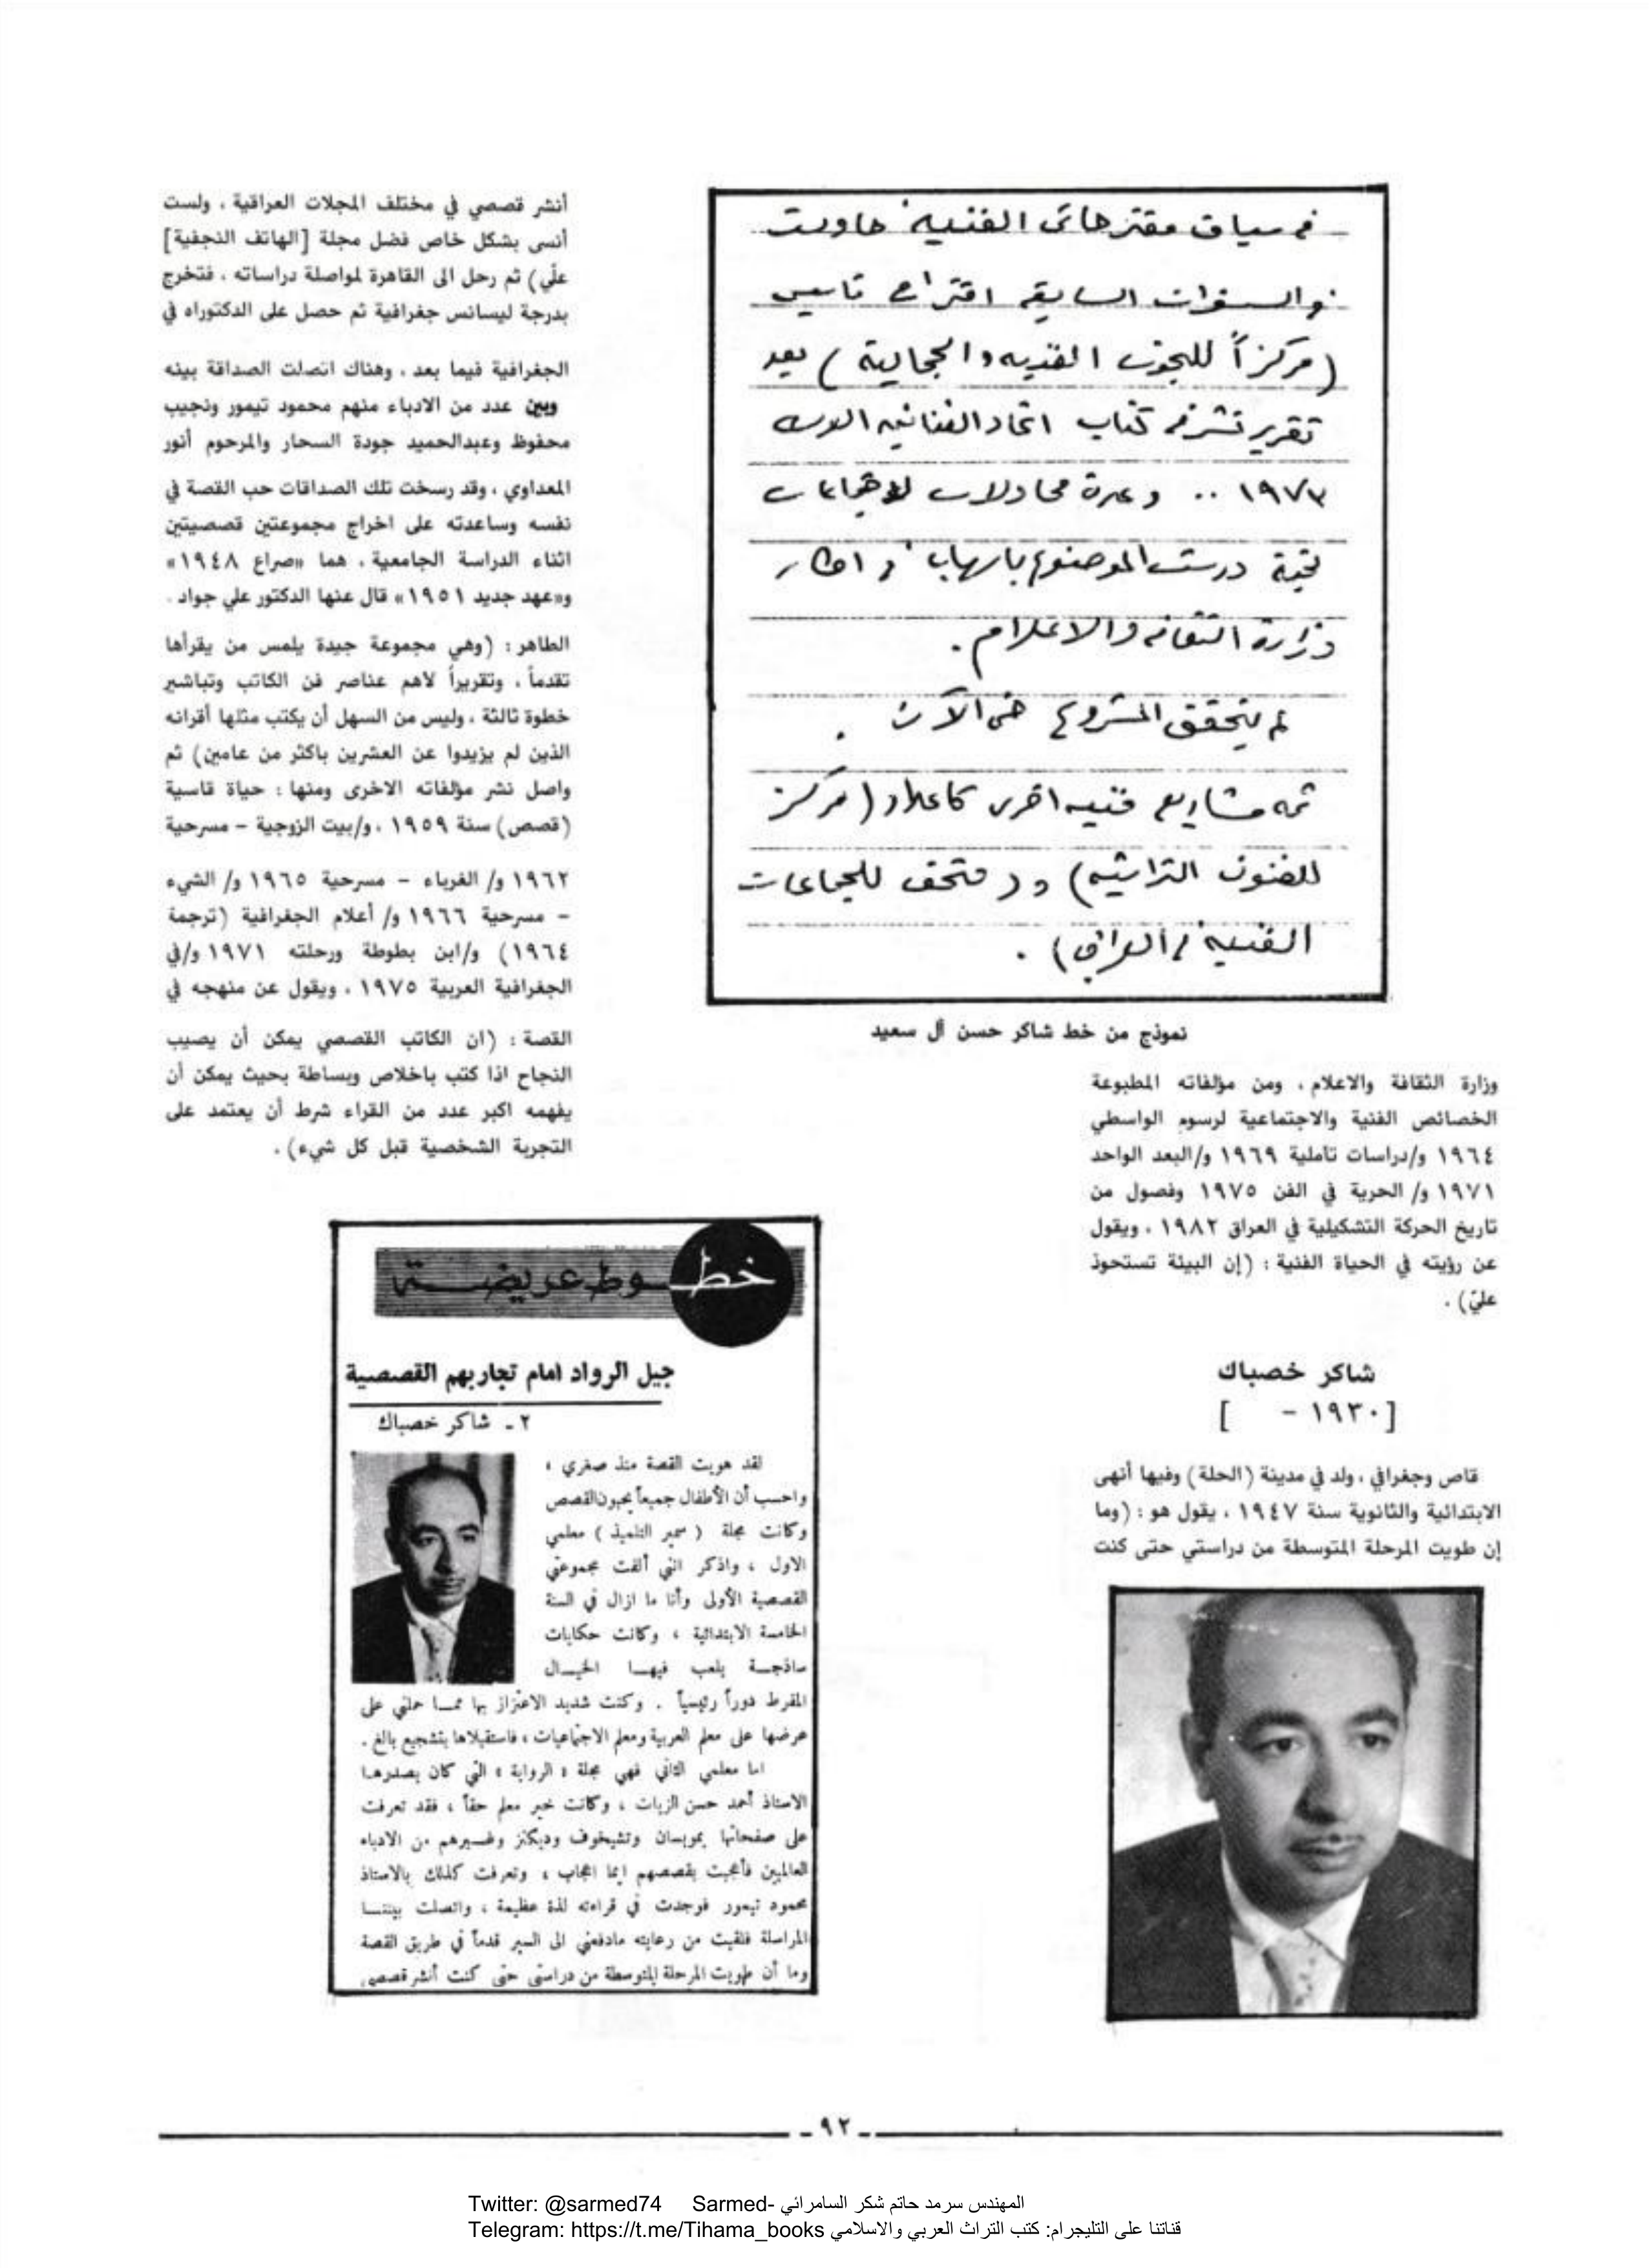 في سياق مقترحاتي الفنية حاولت
في السنوات السابقة اقتراح تأسيس
(مركزاً للبحوث الفنية والجمالية) بعد
تقرير نشر في كتاب اتحاد الفنانين العرب
١٩٧٣ .. وعدة محاولات لاجتماعات
درست الموضوع باسهاب في اطار
وزارة الثقافة والاعلام .
لم يتحقق المشروع حتى الآن .
ثمة مشاريع فنية اخرى كاعداد (مركز
للفنون التراثية) و(متحف للجماعات
الفنية في العراق) .
نموذج من خط شاكر حسن آل سعيد
وزارة الثقافة والاعلام ، ومن مؤلفاته المطبوعة
الخصائص الفنية والاجتماعية لرسوم الواسطي
١٩٦٤ و/دراسات تأملية ١٩٦٩ و/البعد الواحد
١٩٧١ و/ الحرية في الفن ١٩٧٥ وفصول من
تاريخ الحركة التشكيلية في العراق ١٩٨٢ ، ويقول
عن رؤيته في الحياة الفنية : (إن البيئة تستحوذ
عليّ) .
شاكر خصباك
[١٩٣٠ - ]
قاص وجغرافي ، ولد في مدينة (الحلة) وفيها أنهى
الابتدائية والثانوية سنة ١٩٤٧ ، يقول هو : (وما
إن طويت المرحلة المتوسطة من دراستي حتى كنت
أنشر قصصي في مختلف المجلات العراقية ، ولست
أنسى بشكل خاص فضل مجلة [الهاتف النجفية]
علّي) ثم رحل الى القاهرة لمواصلة دراساته ، فتخرج
بدرجة ليسانس جغرافية ثم حصل على الدكتوراه في
الجغرافية فيما بعد ، وهناك اتصلت الصداقة بينه
وبين عدد من الادباء منهم محمود تيمور ونجيب
محفوظ وعبدالحميد جودة السحار والمرحوم أنور
المعداوي ، وقد رسخت تلك الصداقات حب القصة في
نفسه وساعدته على اخراج مجموعتين قصصيتين
اثناء الدراسة الجامعية ، هما «صراع ١٩٤٨»
و«عهد جديد ١٩٥١» قال عنها الدكتور علي جواد .
الطاهر : (وهي مجموعة جيدة يلمس من يقرأها
تقدماً ، وتقريراً لاهم عناصر فن الكاتب وتباشير
خطوة ثالثة ، وليس من السهل أن يكتب مثلها أقرانه
الذين لم يزيدوا عن العشرين باكثر من عامين) ثم
واصل نشر مؤلفاته الاخرى ومنها : حياة قاسية
(قصص) سنة ١٩٥٩ ، و/بيت الزوجية - مسرحية
١٩٦٢ و/ الغرباء - مسرحية ١٩٦٥ و/ الشيء
- مسرحية ١٩٦٦ و/ أعلام الجغرافية (ترجمة
١٩٦٤) و/ابن بطوطة ورحلته ١٩٧١ و/في
الجغرافية العربية ١٩٧٥ ، ويقول عن منهجه في
القصة : (ان الكاتب القصصي يمكن أن يصيب
النجاح اذا كتب باخلاص وبساطة بحيث يمكن أن
يفهمه اكبر عدد من القراء شرط أن يعتمد على
التجربة الشخصية قبل كل شيء) .
خطوط عريضة
جيل الرواد امام تجاربهم القصصية
٢ - شاكر خصباك
لقد هويت القصة منذ صغري ،
واحسب أن الأطفال جميعاً يحبون القصص
وكانت مجلة ( سمير التلميذ ) معلمي
الاول ، واذكر انني ألفت مجموعتي
القصصية الأولى وأنا ما ازال في السنة
الخامسة الابتدائية ، وكانت حكايات
ساذجة يلعب فيها الخيال
المفرط دوراً رئيسياً . وكنت شديد الاعتزاز بها مما حملني على
عرضها على معلم العربية ومعلم الاجتماعيات ، فاستقبلاها بتشجيع بالغ .
اما معلمي الثاني فهي مجلة « الرواية » التي كان يصدرها
الاستاذ أحمد حسن الزيات ، وكانت خير معلم حقاً ، فقد تعرفت
على صفحاتها بموبسان وتشيخوف وديكنز وغيرهم من الادباء
العالميين فأعجبت بقصصهم ايما اعجاب ، وتعرفت كذلك بالاستاذ
محمود تيمور فوجدت في قراءته لذة عظيمة ، واتصلت بيننا
المراسلة فلقيت من رعايته مادفعني الى السير قدماً في طريق القصة
وما أن طويت المرحلة المتوسطة من دراستي حتى كنت أنشر قصصي
- ٩٢ -
Twitter: @sarmed74 Sarmed- المهندس سرمد حاتم شكر السامرائي
Telegram: https://t.me/Tihama_books قناتنا على التليجرام: كتب التراث العربي والاسلامي